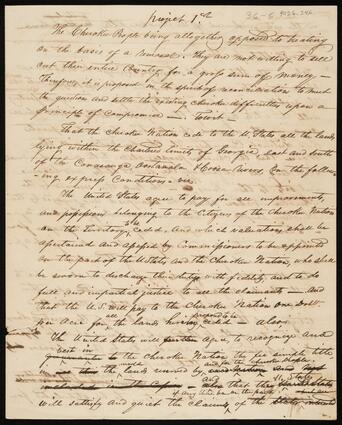 Project 1st
36-5 4026.346
The Cherokee People being altogether opposed to treating
on the basis of a removal, they are not willing to sell
out their entire Country for a gross sum of money —
Therefore, it is proposed in the spirit of reconciliation to meet
the question and settle the existing Cherokee difficulties upon a
principle of compromise — towit —
That the Cherokee Nation cede to the U. States all the lands
lying within the Chartered limits of Georgia, east and south
of the Connasauga Oostanala Rivers, On the follow-
ing express Conditions — viz
The United States agree to pay for all improvements
and possessions belonging to the Citizens of the Cherokee Nation
on the Territory ceded, And which valuations shall be
ascertained and assessed by Commissioners to be appointed
on the part of the U. States and the Cherokee Nation, who shall
be sworn to discharge their duty with fidelity, and to do
full and impartial justice to all the claimants — And
that the U.S. will pay to the Cherokee Nation One Doll.
per Acre for, the lands ceded — also,
The United States will further agree, to recognize and
vest in
to the Cherokee Nation the fee simple title
the lands reserved by
and also that the
if any there be on the part
will satisfy and quiet the claims, of the States